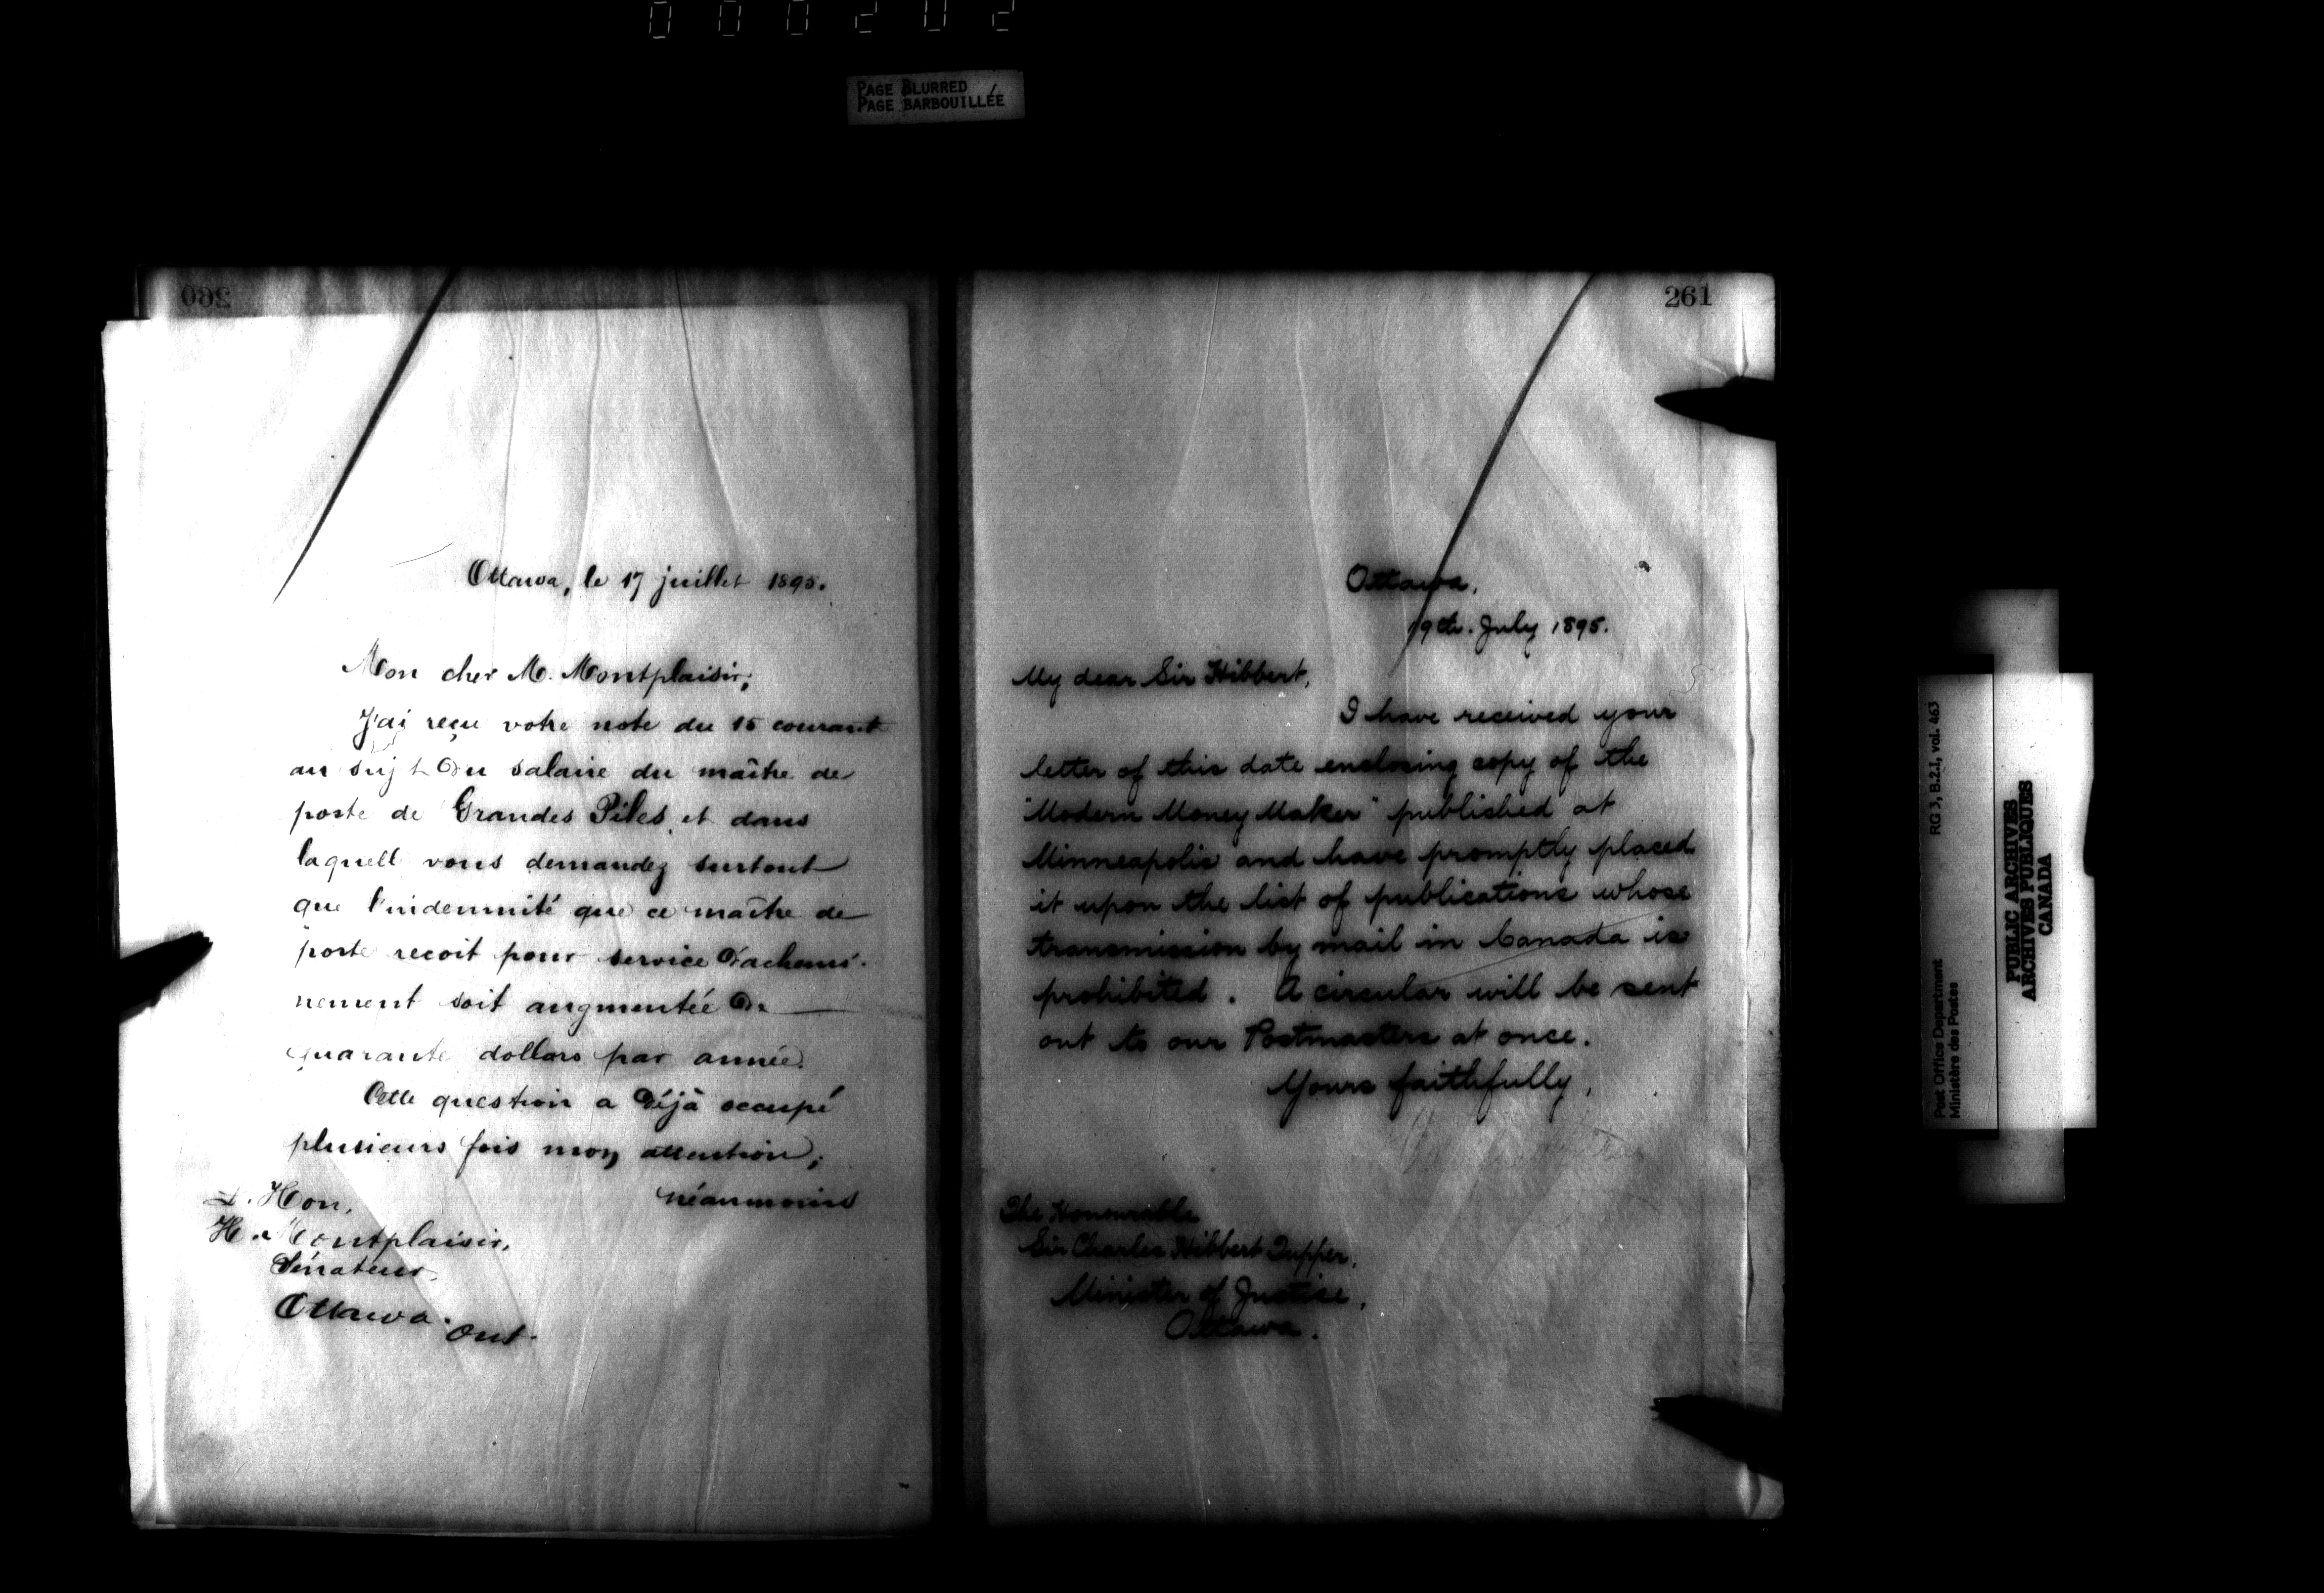 000202
PAGE BLURRED
PAGE BARBOUILLÉE
260
Ottawa, le 17 juillet 1895.
Mon cher M. Montplaisir,
J'ai reçu votre note du 15 courant
au sujet du salaire du maître de
poste de Grandes Piles, et dans
laquell vous demandez surtout
que l'indemnité que ce maître de
poste recoit pour service d'achemi-
nement soit augmentée de
quarante dollars par année.
Cette question a déjà occupé
plusieurs fois mon attention;
néanmoins
L. Hon.
H. Montplaisir,
Sénateur,
Ottawa. Ont.
261
Ottawa,
19th. July 1895.
My dear Sir Hibbert,
I have received your
letter of this date enclosing copy of the
"Modern Money Maker" published at
Minneapolis and have promptly placed
it upon the list of publications whose
transmission by mail in Canada is
prohibited. A circular will be sent
out to our Postmasters at once.
Yours faithfully,
The Honourable
Sir Charles Hibbert Tupper,
Minister of Justice,
Ottawa.
Post Office Department
Ministère des Postes
RG 3, B.2.1, vol. 463
PUBLIC ARCHIVES
ARCHIVES PUBLIQUES
CANADA